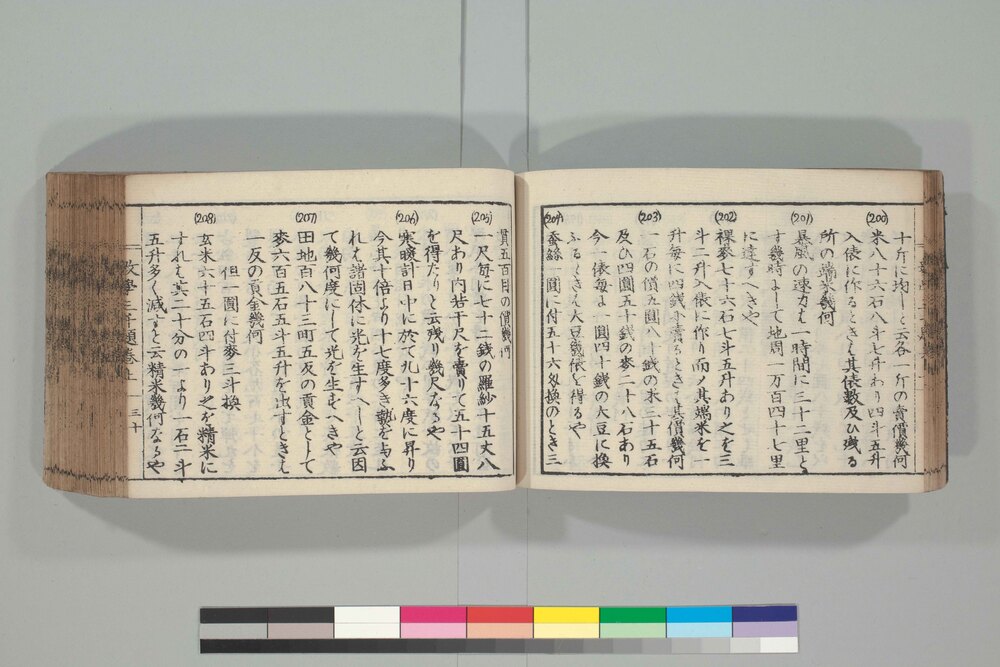 十斤に均しと云各一斤の賣價幾何
(200)
米八十六石八斗七升わり四斗五升
入俵に作るときハ其俵数及ひ残る
所の端米幾何
(201)
暴風の速力ハ一時間に三十二里と
す幾時よして地周一万百四十七里
に達すへきや
(202)
裸麥七十六石七斗五升あり之を三
斗二升入俵に作り而〆其端米を一
升毎に四銭に賣るときハ其價幾何
(203)
一石の價五圓八十銭の米三十五石
及ひ四圓五十銭の麥二十八石あり
今一俵毎よ一圓四十銭の大豆に換
ふるときハ大豆幾俵を得るや
(204)
蚕絲一圓に付五十六匁換のとき三
貫五百目の價幾何
(205)
一尺毎に七十二銭の羅紗十五丈八
尺わり内若干尺を賣りて五十四圓
を得たりと云残り幾尺なるや
(206)
寒暖計日中に於て九十六度に昇り
今其十倍より十七度多き熱を与ふ
れハ諸固体に光を生すへしと云因
て幾何度にして光を生すへきや
(207)
田地百八十二町五反の貢金として
麥六百五石五斗五升を出すときハ
一反の貢金幾何
但一圓に付麥三斗換
(208)
玄米六十五石四斗わり之を精米に
すれハ其二十分の一より一石二斗
五升多く減すと云精米幾何なるや